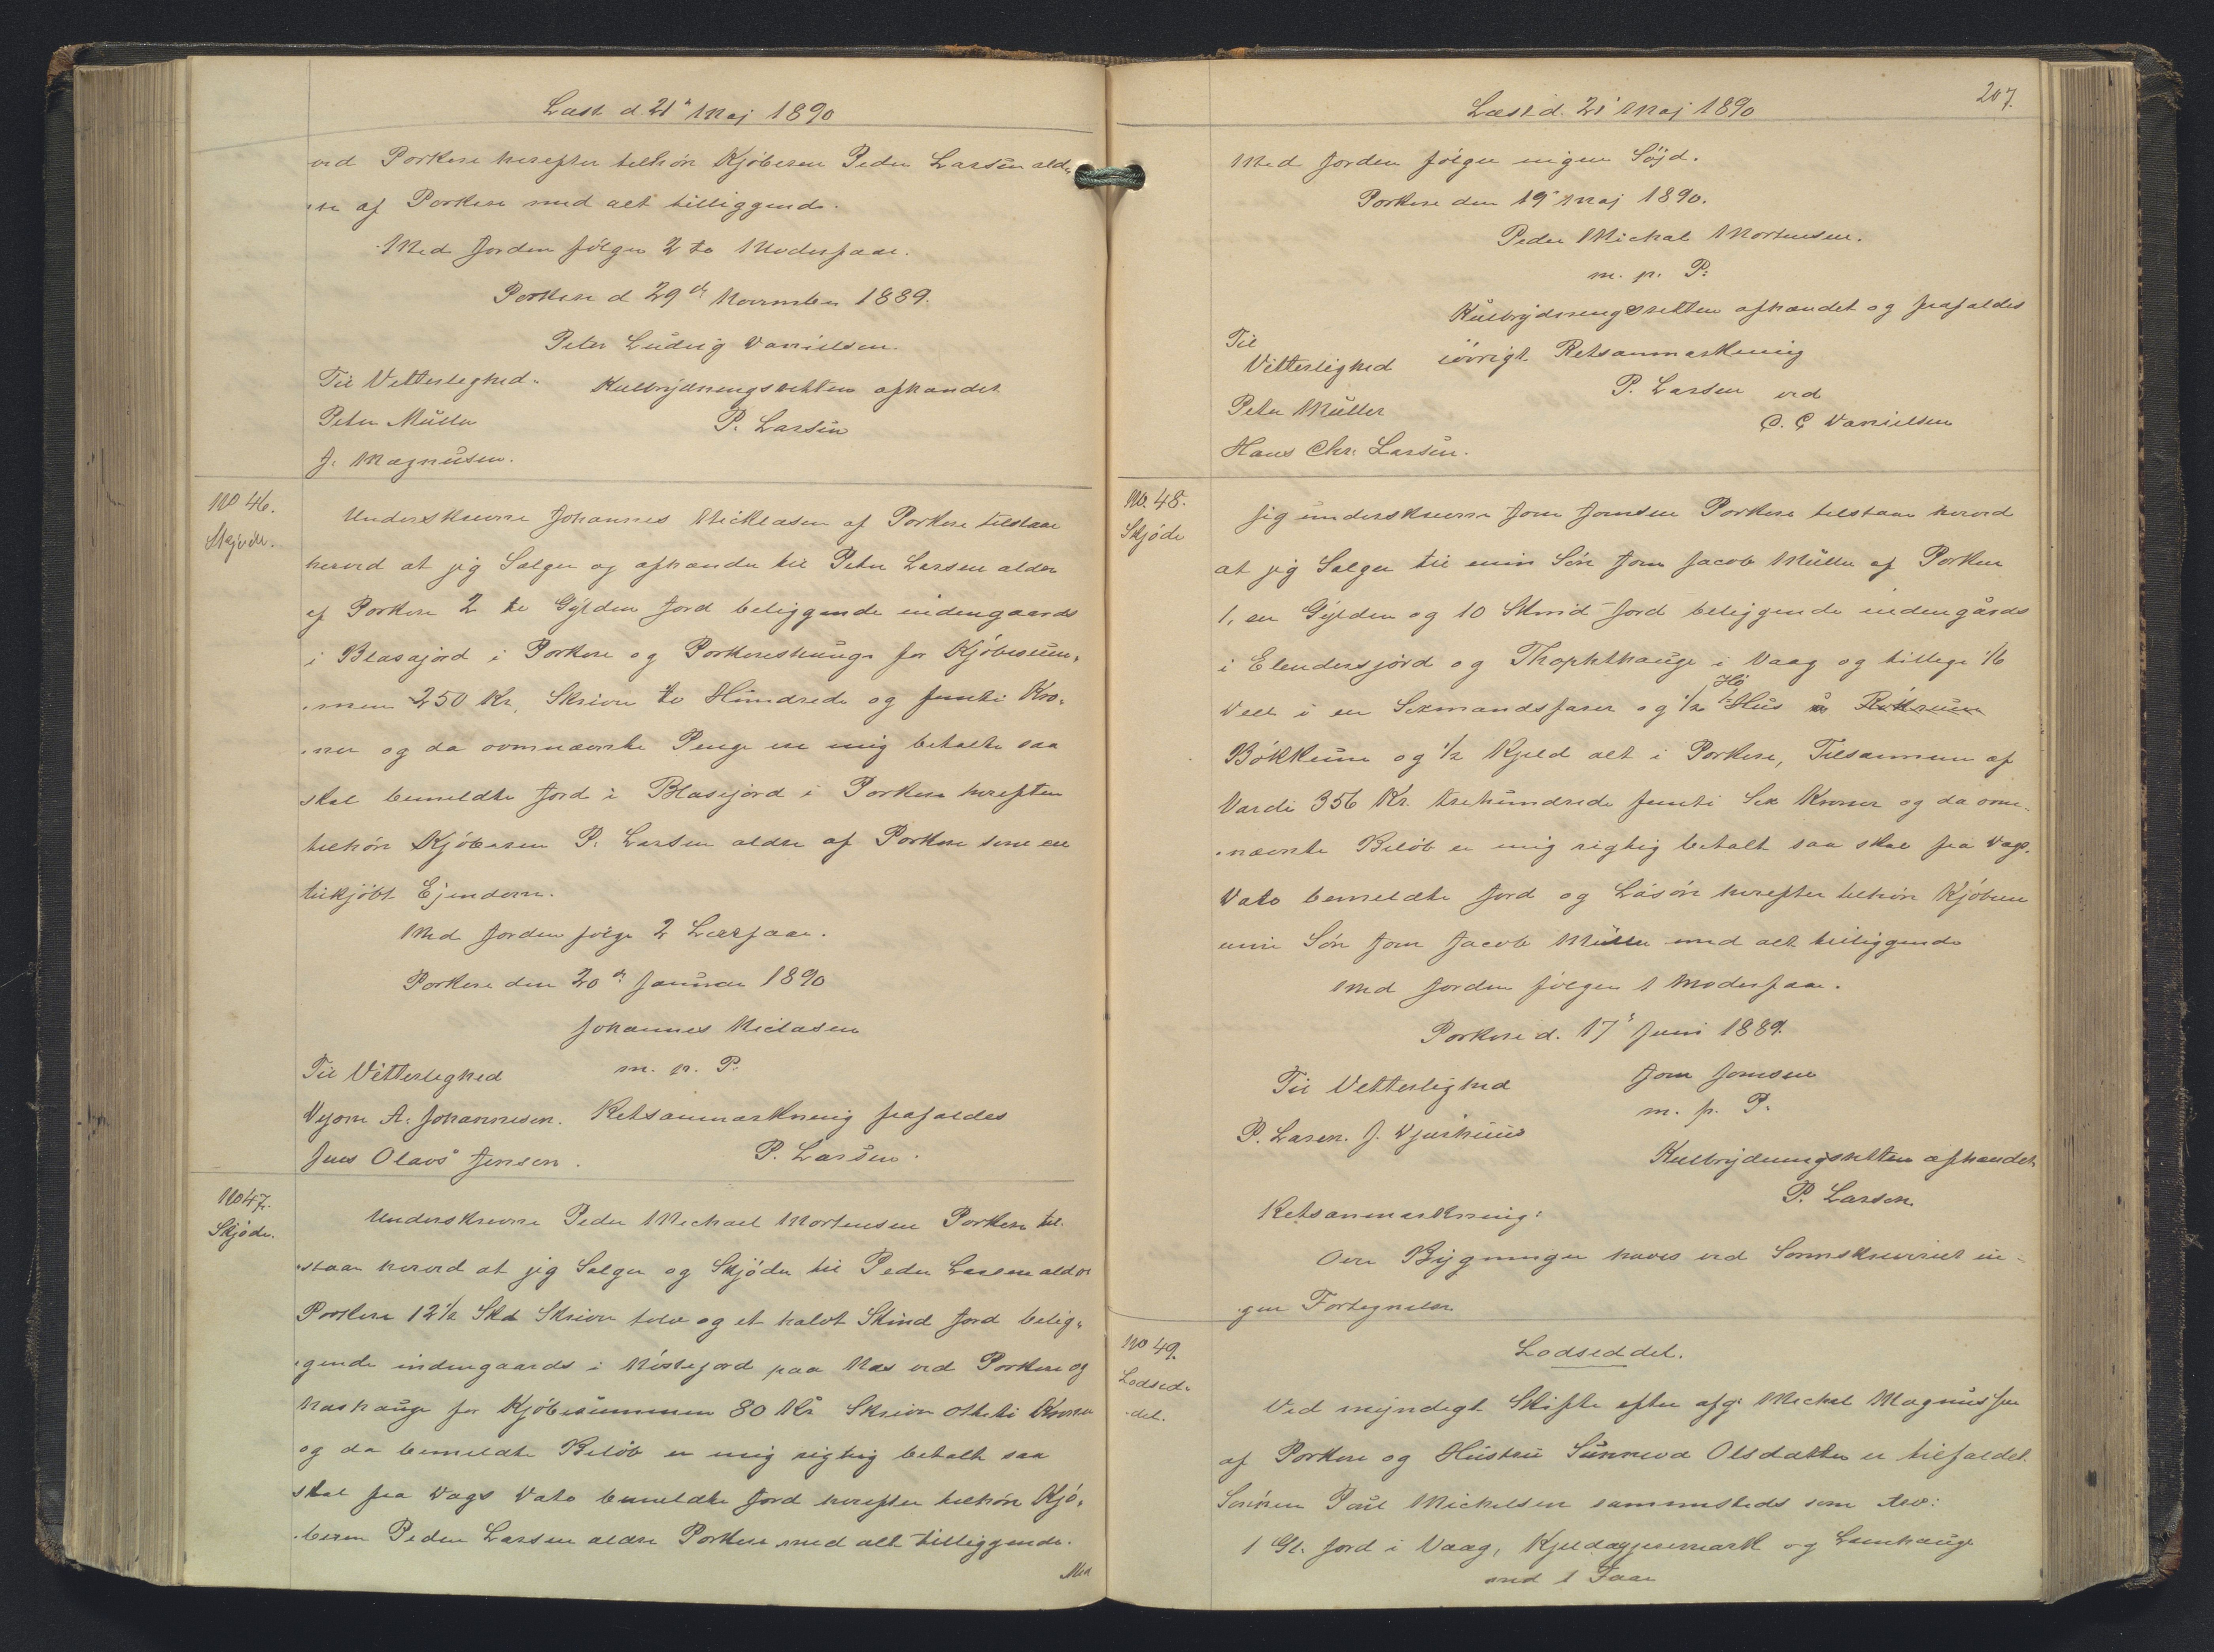 Læst d 21' Maj 1890
ved Porkere herefter tilhøre Kjöberen Peder Larsen æld„
„re af Porkere med alt tilliggende.
Med Jorden følger 2 to Moderfaar.
Porkere d 29de November 1889.
Peter Ludvig Danielsen.
Til Vetterleghed. Kulbrydningsretten afhandet
Peter Müller P. Larsen
J. Magnusen.
No 46. Underskrevne Johannes Nicklasen af Porkere tilstaar
Skjøde. herved at jeg Sælger og afhænder til Peter Larsen ældre
af Porkere 2 to Gylden Jord beliggende indengaards
i Blasajord i Porkere og Porkereshauge for Kjöbesum„
„men 250 Kr. Skriver to Hundrede og femti Kro„
„ner og da ovennævnte Penge er mig betalte saa
skal bemeldte Jord i Blasejord i Porkere herefter
tilhøre Kjöberen P. Larsen ældre af Porkere som en
tilkjöbt Ejendom.
Med Jorden følge 2 Leerfaar.
Porkere den 20de Januar 1890
Johannes Niclasen
Til Vetterleghed m. p. P.
Djone A. Johannesen. Retsanmærkning frafaldes
Jens Olavs Jensen. P. Larsen.
No 47. Underskrevne Peder Michael Mortensen Porkere til„
Skjøde. „staar herved at jeg Sælger og Skjøder til Peder Larsen ældre
Porkere 12½ Skd Skriver tolv og et halvt Skind Jord belig„
„gende indengaards i paa Næs ved Porkere og
Næshauge for Kjöbesummen 80 Kr Skriver Otteti Kroner
og da bemeldte Belöb er mig rigtig betalt saa
skal fra Dags Dato bemeldte Jord herefter tilhøre Kjö„
„beren Peder Larsen ældre Porkere med alt tilliggende.
Med
207.
Læst d. 21' Maj 1890
Med Jorden følger ingen Söjd.
Porkere den 19' Maj 1890.
Peder Michal Mortensen.
m. p. P.
Kulbrydningsretten afhændet og frafaldes
Til
Vitterlighed iövrigt Retsanmærkning
Peter Müller P. Larsen ved
D. C Danielsen
Hans Chr. Larsen.
No. 48. Jeg underskrevne Jom Jomsen Porkere tilstaar herved
Skjøde at jeg Sælger til min Sön Jom Jacob Müller af Porkere
1, en Gylden og 10 Skind Jord beliggende indengårds
i Elendersjörd og i Vaag og tillige 1/6
Deel i en Sexmandsfarer og ½ Hö Hus
Bökkeume og ½ Kjeld alt i Porkere, Tilsammen af
Værdi 356 Kr. trehundrede femti Sex Kroner og da oven„
„nævnte Belöb er mig rigtig betalt saa skal fra Dags
Dato bemeldte Jord og Lösöre herefter tilhøre Kjöberen
min Sön Jom Jacob Müller med alt tilliggende
Med Jorden følger 1 Moderfaar.
Porkere d. 17' Juni 1889.
Til Vetterlighed Jom Jomsen
P. Lasen. J. Djurhuus m. p. P.
Kulbrydningsretten afhændet
P. Larsen
Retsanmærkning:
Over Bygninger haves ved Sorenskriveriet in„
„gen Fortegnelse.
No 49. Lodseddel.
Lodsed„
„del. Ved myndigt Skifte efter afg: Michel Magnussen
af Porkere og Hustru Sunneva Olsdatter er tilfaldet
Sönnen Poul Michelsen sammesteds som Arv:
1 Gl. Jord i Vaag, og Lamhauge
med 1 Faar